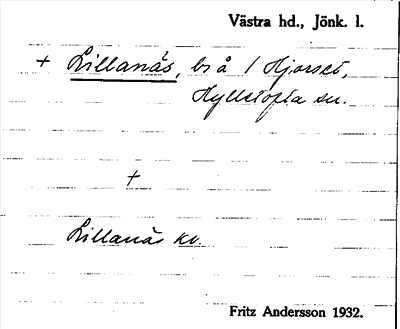 Västra hd., Jönk. l.
+ Lillanäs, bi å 1 Hjorset,
Hyllstofta sn.
+
Lillanäs kv.
Fritz Andersson 1932.